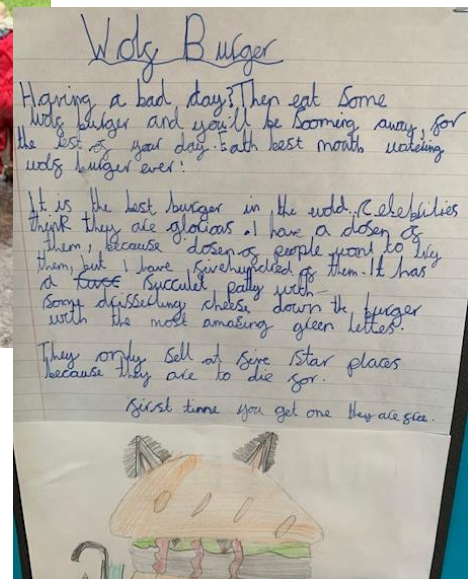 Wolf Burger
Having a bad day? Then eat some
wolf burger and you'll be zooming away, for
the rest of your day. Eath best mouth watering
wolf burger ever!
It is the best burger in the wold. Celeblities
think they are glorious. I have a dosen of
them, because dosen of people want to try
them, but I have fivehundred of them. It has
a succulet patty with
some drissecling cheese down the burger
with the most amasing green lettes.
They only sell at five star places
because they are to die for.
first time you get one they are free.